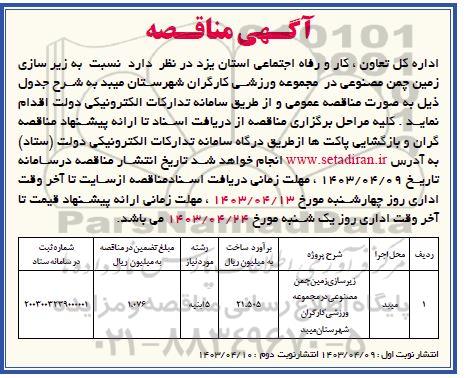 آگهی مناقصه
اداره کل تعاون ، کار و رفاه اجتماعی استان یزد در نظر دارد نسبت به زیر سازی
زمین چمن مصنوعی در مجموعه ورزشی کارگران شهرستان میبد به شرح جدول
ذیل به صورت مناقصه عمومی و از طریق سامانه تدارکات الکترونیکی دولت اقدام
نماید . کلیه مراحل برگزاری مناقصه از دریافت اسناد تا ارائه پیشنهاد مناقصه
گران و بازگشایی پاکت ها ازطریق درگاه سامانه تدارکات الکترونیکی دولت (ستاد)
به آدرس www.setadiran.ir انجام خواهد شد تاریخ انتشار مناقصه درسامانه
تاریخ ۱۴۰۳/۰۴/۰۹ ، مهلت زمانی دریافت اسنادمناقصه ازسایت تا آخر وقت
اداری روز چهارشنبه مورخ ۱۴۰۳/۰۴/۱۳ ، مهلت زمانی ارائه پیشنهاد قیمت تا
آخر وقت اداری روز یک شنبه مورخ ۱۴۰۳/۰۴/۲۴ می باشد.
ردیف محل اجرا شرح پروژه برآورد ساخت به میلیون ریال رشته مورد نیاز مبلغ تضمین در مناقصه به میلیون ریال شماره ثبت در سامانه ستاد
۱ میبد زیرسازی زمین چمن مصنوعی در مجموعه ورزشی کارگران شهرستان میبد ۲۱.۵۰۵ ۵ ابنیه ۱.۰۷۶ ۲۰۰۳۰۰۳۲۳۹۰۰۰۰۰۱
انتشار نوبت اول : ۱۴۰۳/۰۴/۰۹ انتشار نوبت دوم : ۱۴۰۳/۰۴/۱۰
ParsNamadData
۰۲۱-۸۸۳۴۹۶۷۰-۵